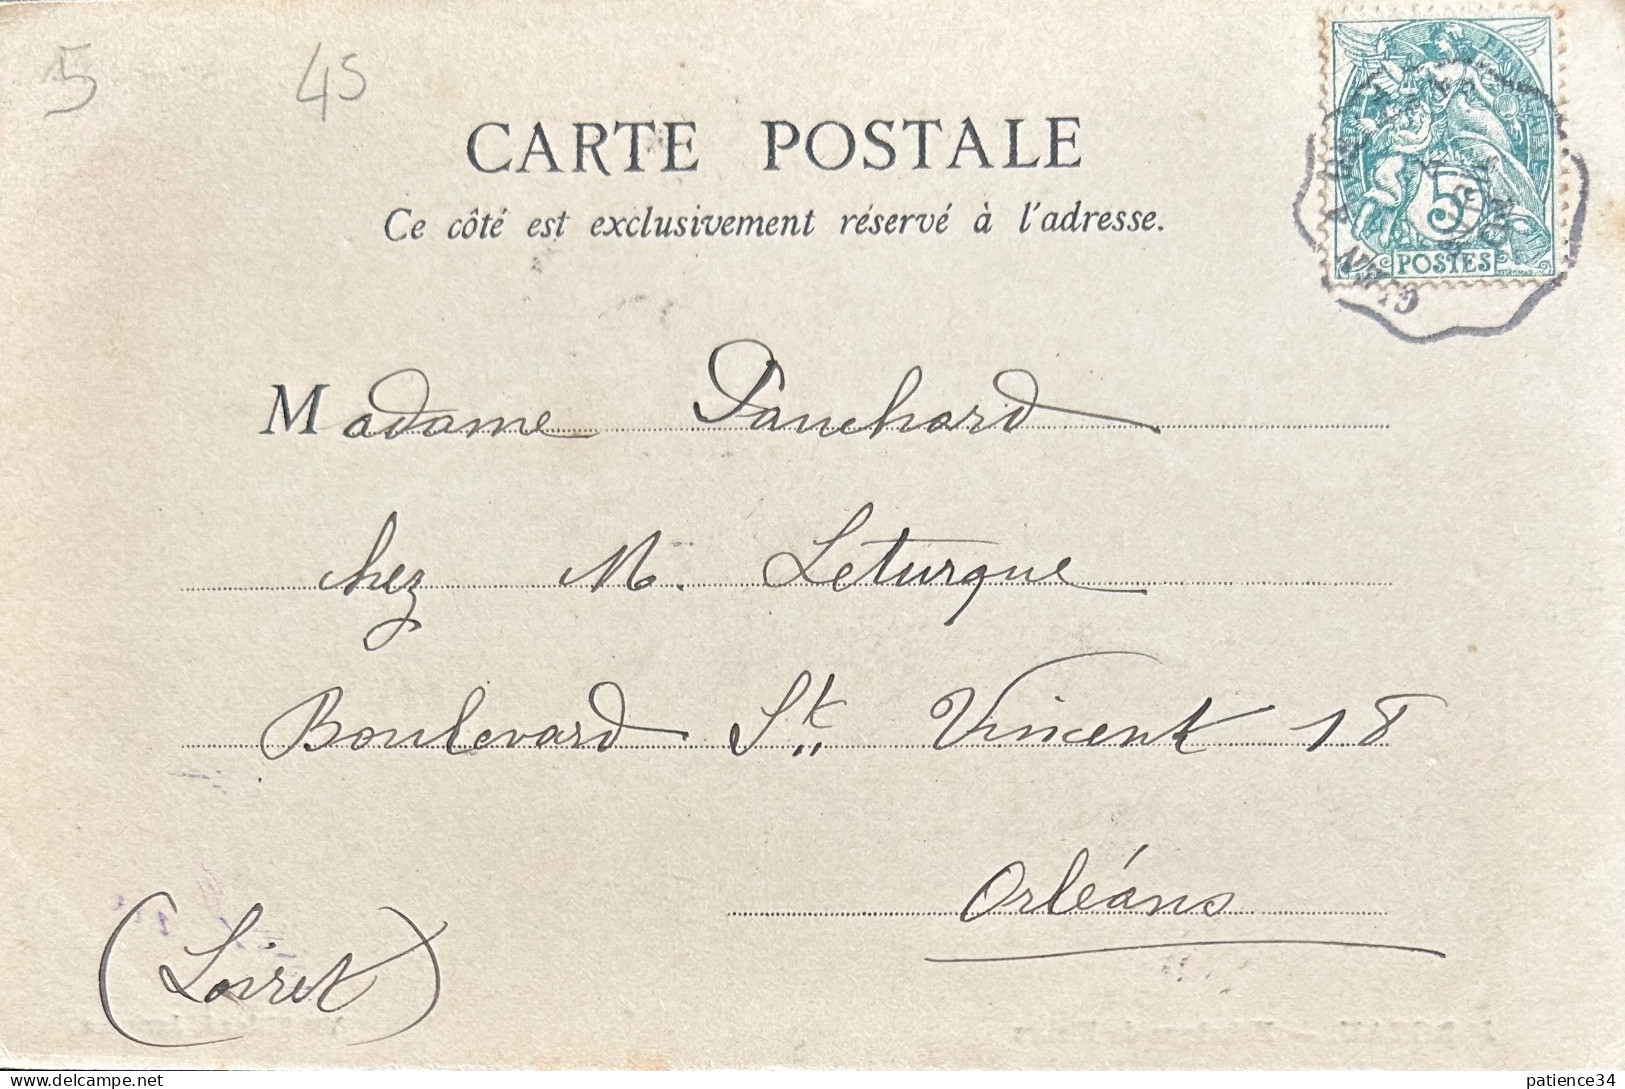 5 45
CARTE POSTALE
Ce côté est exclusivement réservé à l'adresse.
5
POSTES
Madame Panchard
chez M. Leturque
Boulevard St. Vincent 18
Orléans
(Loiret)
delcampe.net
patience34